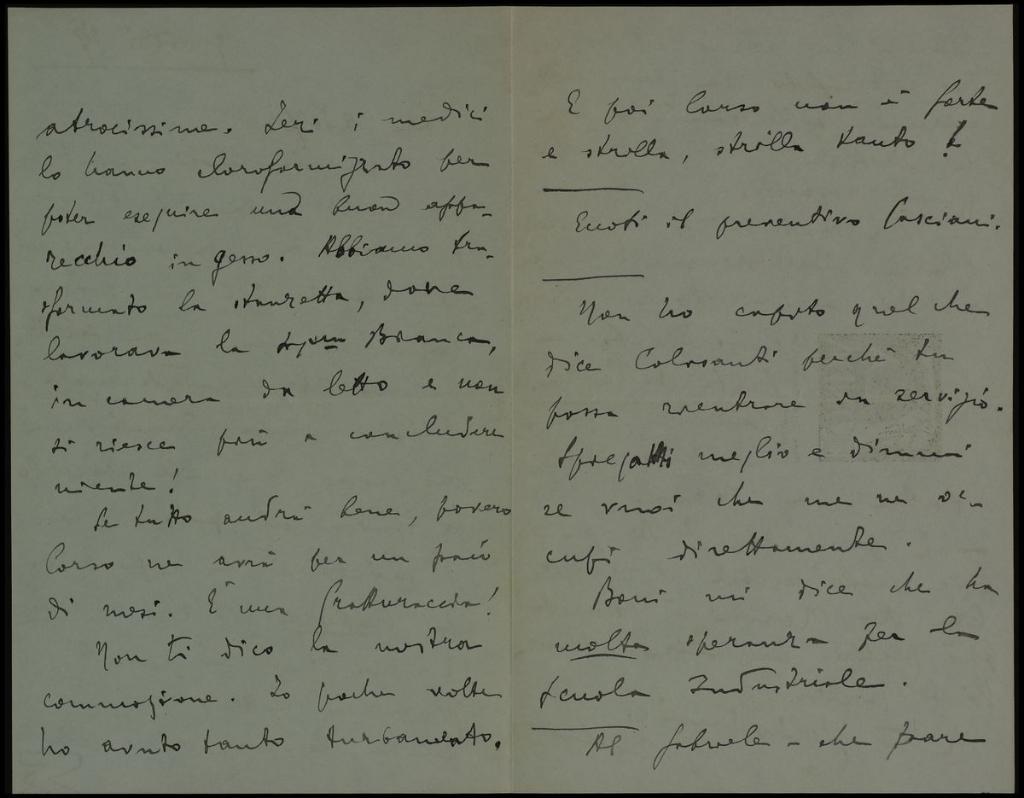 atrocissime. Ieri i medici
lo hanno cloroformizzato per
poter eseguire una buona appa-
recchio in gesso. Abbiamo tra-
sformato la stanzetta, dove
lavorava la Sigra Bianca,
in camera da letto e non
si riesce più a concludere
niente!
Se tutto andrà bene, povero
Corso ne avrà per un paio
di mesi. È una fratturaccia!
Non ti dico la nostra
commozione. Io poche volte
ho avuto tanto turbamento.
E poi Corso non è forte
e strilla, strilla tanto!
Eccoti il preventivo Casciani.
Non ho capito quel che
dice Colasanti perché tu
possa rientrare in servizio.
Spiegati meglio e dimmi
se vuoi che me ne oc-
cupi direttamente.
Boni mi dice che ha
molta speranza per la
Scuola Industriale.
Al Gabriele - che pare